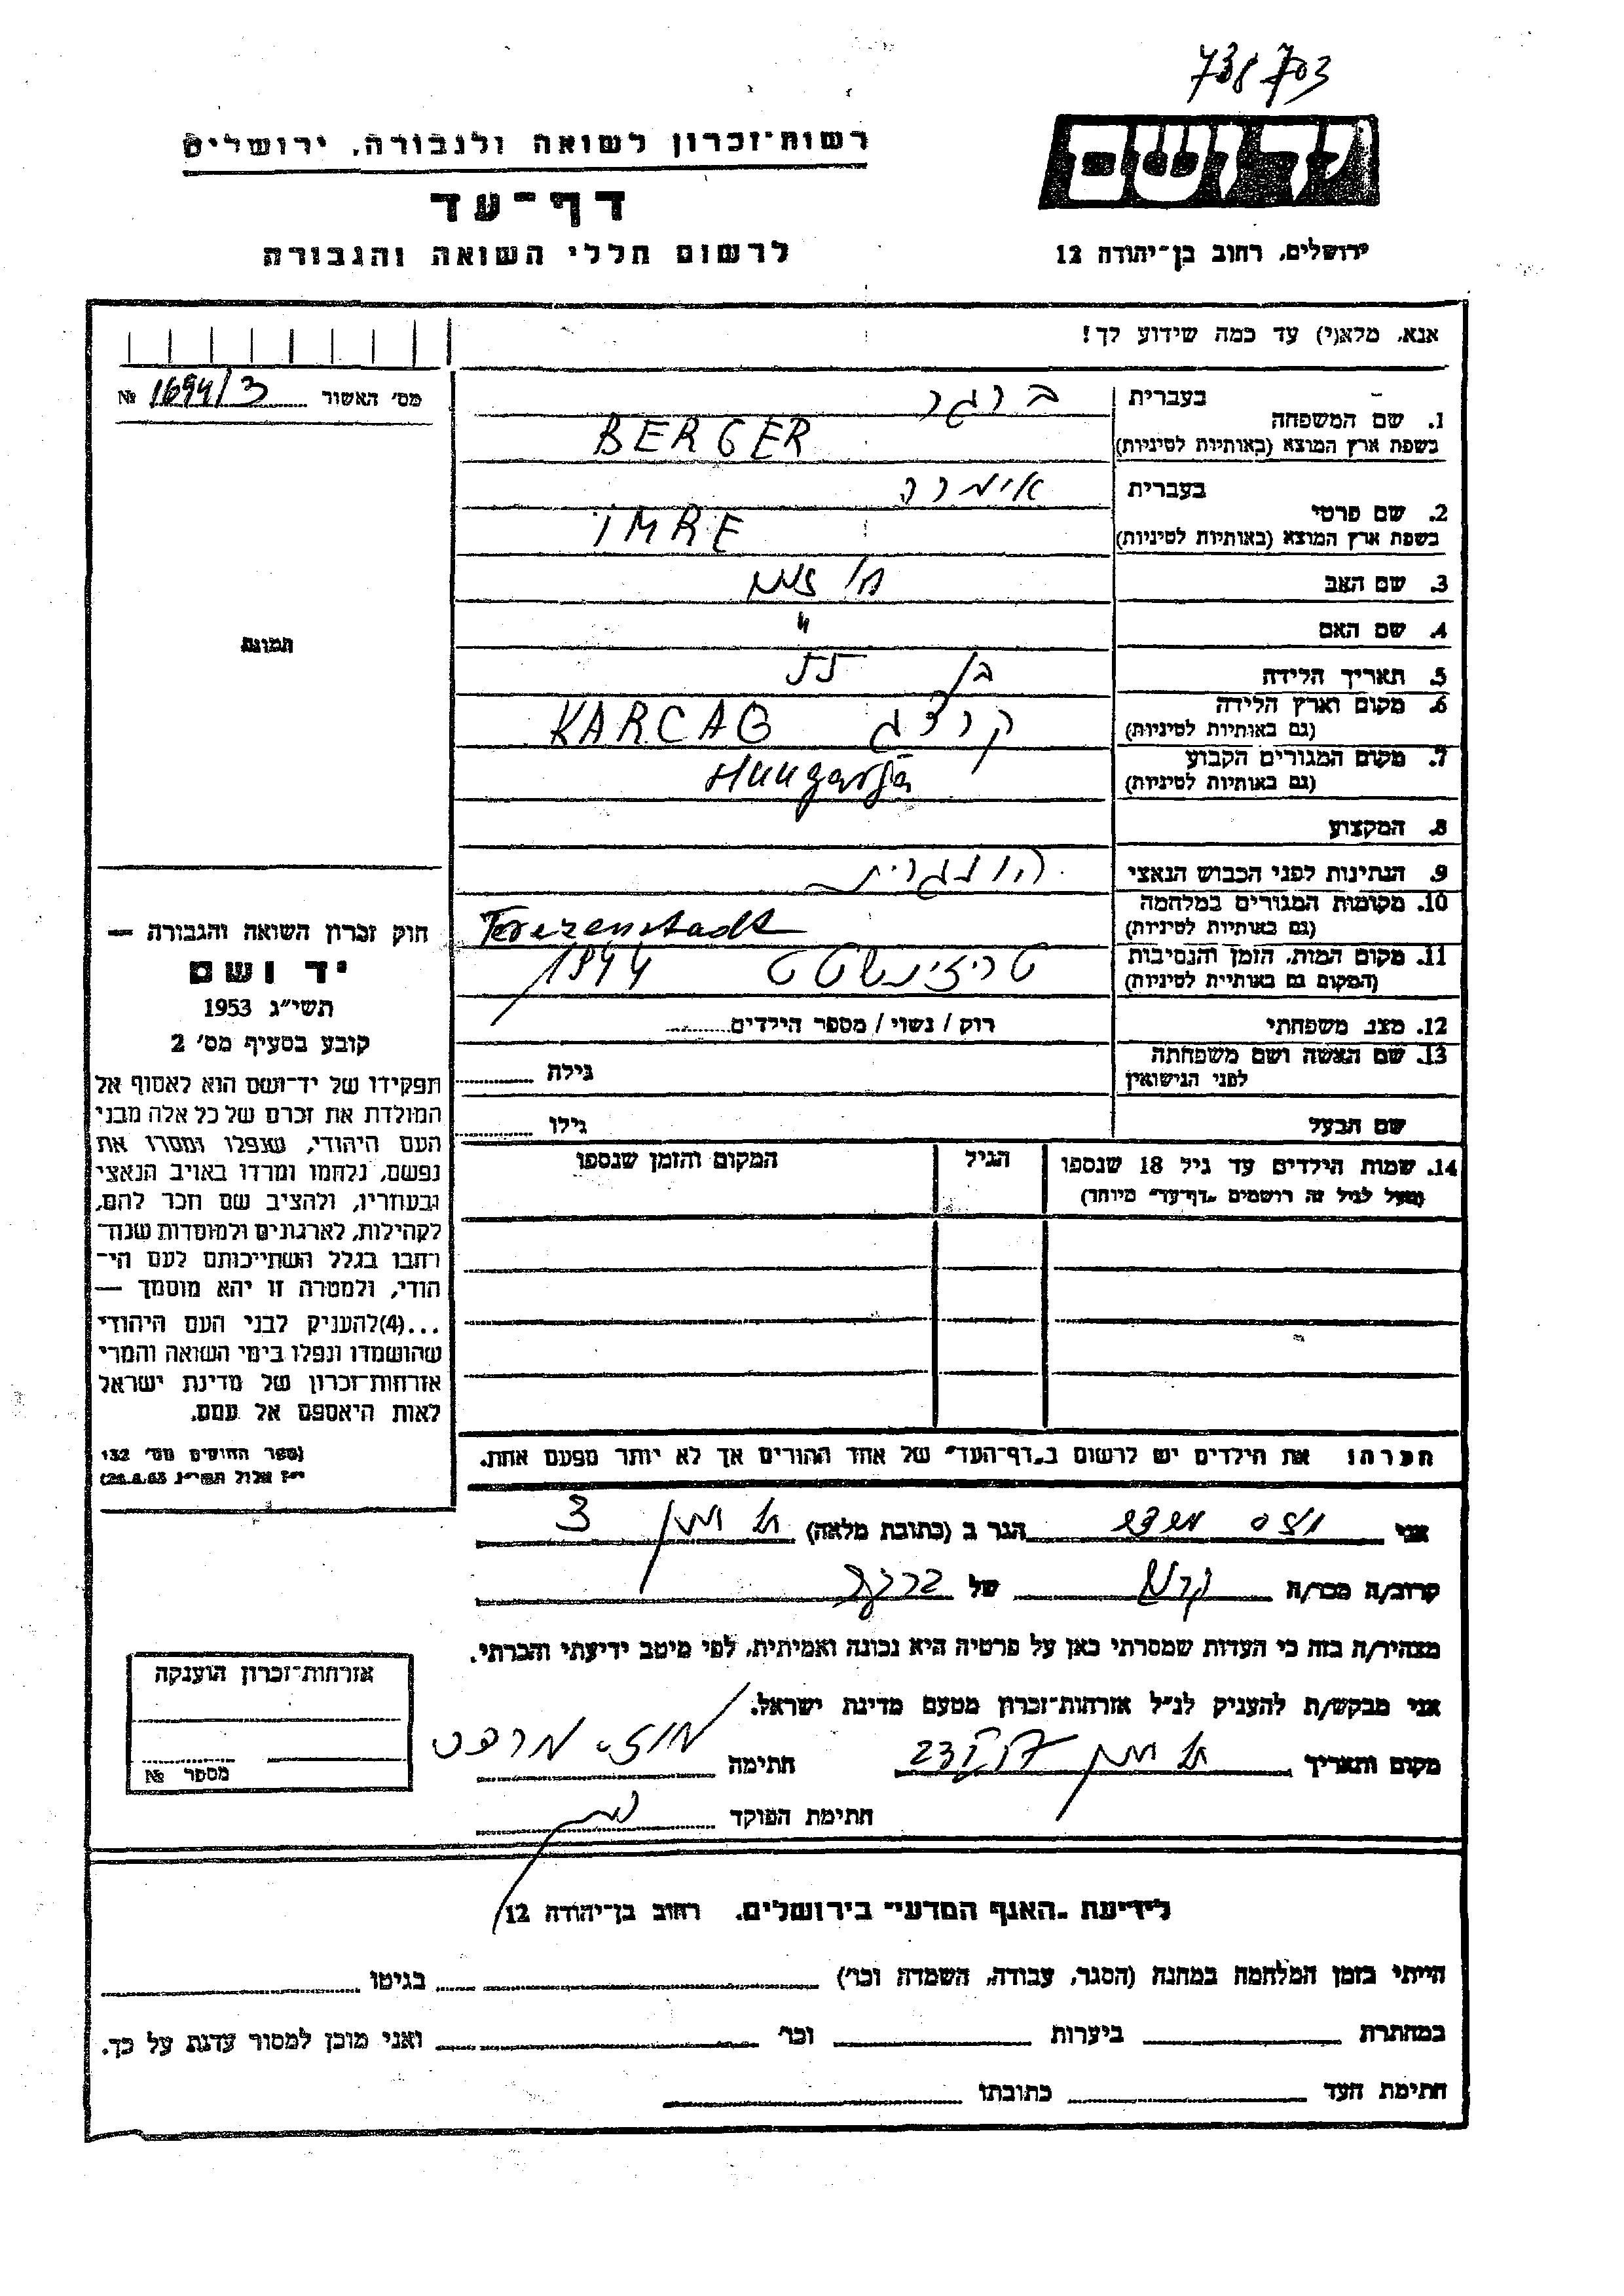 738703
רשות־זכרון לשואה ולגבורה, ירושלים
יד ושם
דף־עד
לרשום חללי השואה והגבורה
ירושלים, רחוב בן־יהודה 12
אנא, מלא(י) עד כמה שידוע לך!
מס' האשור 1694/3 №
בעברית ברגר
1. שם המשפחה
בשפת ארץ המוצא (באותיות לטיניות) BERGER
בעברית אימרה
2. שם פרטי
בשפת ארץ המוצא (באותיות לטיניות) IMRE
3. שם האב
4. שם האם "
5. תאריך הלידה בן 55
6. מקום וארץ הלידה
(גם באותיות לטיניות) קרצג KARCAG
7. מקום המגורים הקבוע
(גם באותיות לטיניות) Hungarja
8. המקצוע
9. הנתינות לפני הכבוש הנאצי הונגרית
10. מקומות המגורים במלחמה
(גם באותיות לטיניות) Terezenstadt
11. מקום המות, הזמן והנסיבות
(המקום גם באותיות לטיניות) טריזינשטט 1944
12. מצב משפחתי רוק / נשוי / מספר הילדים
13. שם האשה ושם משפחתה
לפני הנישואין גילה
שם הבעל גילו
14. שמות הילדים עד גיל 18 שנספו הגיל המקום והזמן שנספו
(מעל לגיל זה רושמים "דף־עד" מיוחד)
תמונה
חוק זכרון השואה והגבורה —
יד ושם
תשי״ג 1953
קובע בסעיף מס' 2
תפקידו של יד־ושם הוא לאסוף אל
המולדת את זכרם של כל אלה מבני
העם היהודי, שנפלו ומסרו את
נפשם, נלחמו ומרדו באויב הנאצי
ובעוזריו, ולהציב שם וזכר להם,
לקהילות, לארגונים ולמוסדות שנח־
רבו בגלל השתייכותם לעם הי־
הודי, ולמטרה זו יהא מוסמך —
...(4)להעניק לבני העם היהודי
שהושמדו ונפלו בימי השואה והמרי
אזרחות־זכרון של מדינת ישראל
לאות היאספם אל עמם.
(ספר החוקים מס' 132
י״ז אלול תשי״ג 28.8.53)
הערה: את הילדים יש לרשום ב"דף־העד" של אחד ההורים אך לא יותר מפעם אחת.
אני הגר ב (כתובת מלאה) 3
קרוב/ה מכר/ה של
מצהיר/ה בזה כי העדות שמסרתי כאן על פרטיה היא נכונה ואמיתית, לפי מיטב ידיעתי והכרתי.
אני מבקש/ת להעניק לנ״ל אזרחות־זכרון מטעם מדינת ישראל.
מקום ותאריך חתימה
חתימת הפוקד
אזרחות־זכרון הוענקה
מספר №
לידיעת "האגף המדעי" בירושלים, רחוב בן־יהודה 12
הייתי בזמן המלחמה במחנה (הסגר, עבודה, השמדה וכו') בגיטו
במחתרת ביערות וכו' ואני מוכן למסור עדות על כך.
חתימת העד כתובתו